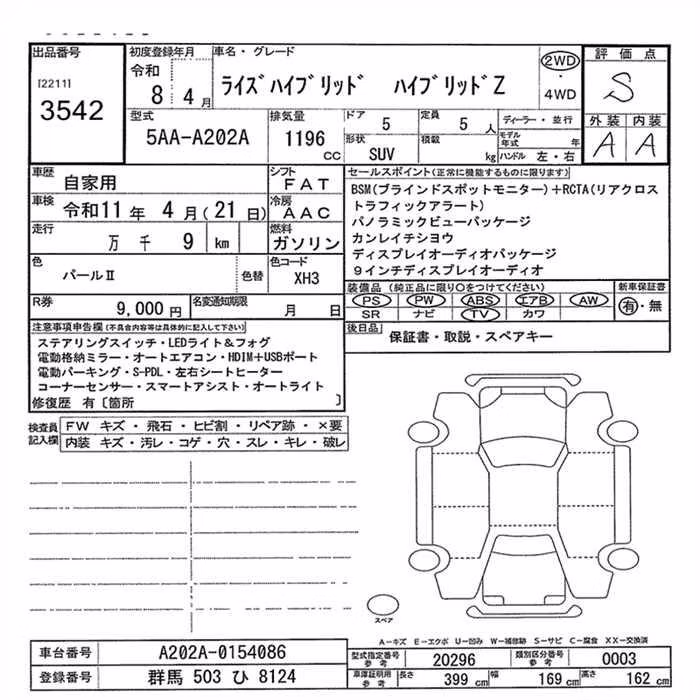 出品番号
[2211]
3542
初度登録年月
令和
8 4 月
車名・グレード
ライズハイブリッド ハイブリッドZ
2WD
・
4WD
評価点
S
外装 内装
A A
型式
5AA-A202A
排気量
1196
CC
ドア
5
定員
5 人
形状
SUV
積載
kg
ディーラー・並行
モデル
年式 年
ハンドル 左・右
車歴
自家用
シフト
FAT
車検
令和11年 4月(21日)
冷房
AAC
走行
万 千 9 km
燃料
ガソリン
色
パールⅡ
色替
色コード
XH3
R券
9,000円
名変通知期限
月 日
セールスポイント(正常に機能するものに限ります)
BSM(ブラインドスポットモニター)+RCTA(リアクロス
トラフィックアラート)
パノラミックビューパッケージ
カンレイチシヨウ
ディスプレイオーディオパッケージ
9インチディスプレイオーディオ
装備品 (純正品に限り○をつけてください)
PS PW ABS エアB AW
SR ナビ TV カワ
新車保証書
有・無
後日品
保証書・取説・スペアキー
注意事項申告欄(不具合内容等は具体的に記入して下さい)
ステアリングスイッチ・LEDライト&フォグ
電動格納ミラー・オートエアコン・HDIM+USBポート
電動パーキング・S-PDL・左右シートヒーター
コーナーセンサー・スマートアシスト・オートライト
修復歴 有〔箇所 〕
検査員
記入欄
FW キズ・飛石・ヒビ割・リペア跡・×要
内装 キズ・汚レ・コゲ・穴・スレ・キレ・破レ
スペア
A-キズ E-エクボ U-凹み W-補修跡 S-サビ C-腐食 XX-交換済
車台番号
A202A-0154086
登録番号
群馬 503 ひ 8124
型式指定番号
参考
20296
類別区分番号
参考
0003
車庫証明用
参考
長さ
399 cm
幅
169 cm
高さ
162 cm